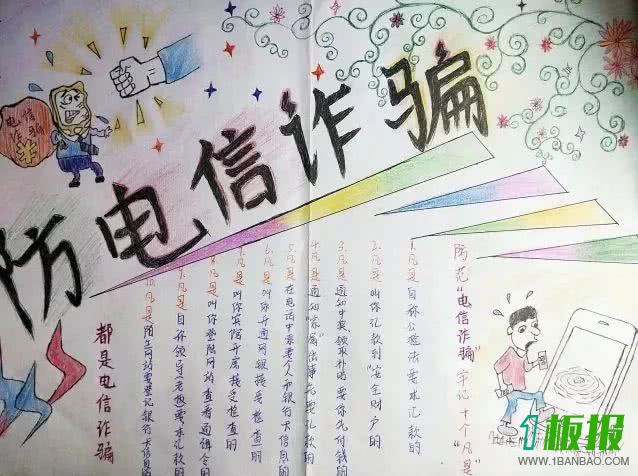 防电信诈骗
电信
诈骗
防范"电信诈骗"牢记十个"凡是"
1.凡是自称公检法要求汇款的
2.凡是叫你汇款到"安全账户"的
3.凡是通知中奖、领取补贴要你先付钱的
4.凡是通知"家属"出事先要汇款的
5.凡是在电话中索要个人和银行卡信息的
6.凡是叫你开通网银接受检查的
7.凡是叫你宾馆开房接受检查的
8.凡是叫你登陆网站查看通缉令的
9.凡是自称领导老板要求汇款的
10.凡是陌生网站要登记银行卡信息的
都是电信诈骗
1板报
WWW.1BANBAO.COM